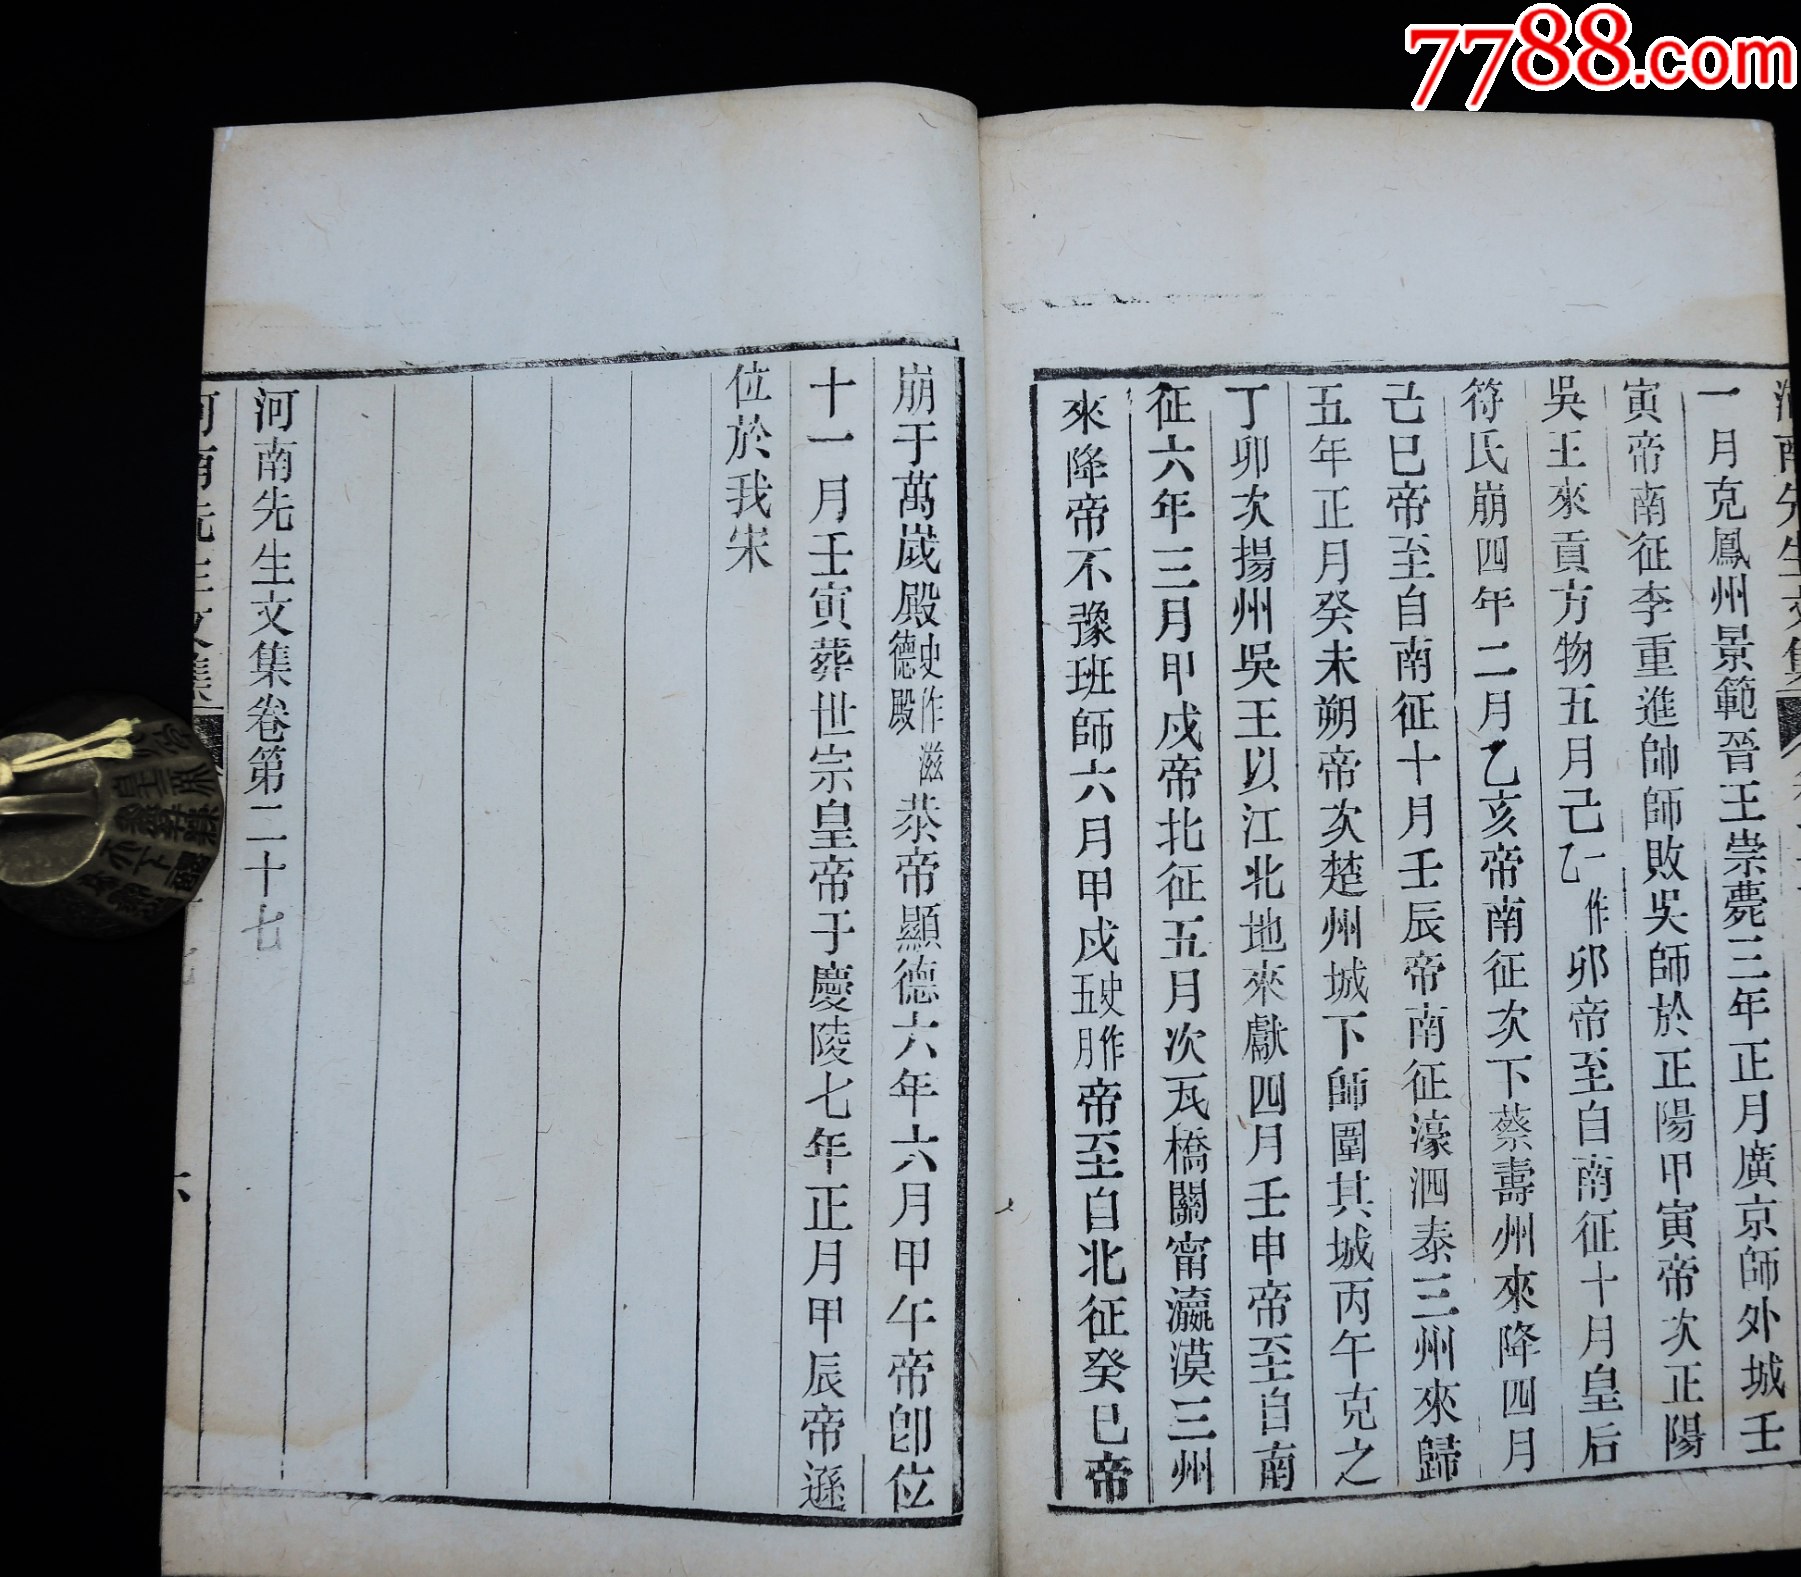 7788.com
一月克鳳州景範晉王崇薨三年正月廣京師外城壬
寅帝南征李重進帥師敗吳師於正陽甲寅帝次正陽
吳王來貢方物五月己一作乙卯帝至自南征十月皇后
符氏崩四年二月乙亥帝南征次下蔡壽州來降四月
己巳帝至自南征十月壬辰帝南征濠泗泰三州來歸
五年正月癸未朔帝次楚州城下師圍其城丙午克之
丁卯次揚州吳王以江北地來獻四月壬申帝至自南
征六年三月甲戌帝北征五月次瓦橋關甯瀛漠三州
來降帝不豫班師六月甲戌史作五月帝至自北征癸巳帝
崩于萬歲殿史作滋德殿恭帝顯德六年六月甲午帝卽位
十一月壬寅葬世宗皇帝于慶陵七年正月甲辰帝遜
位於我宋
河南先生文集卷第二十七
河南先生文集
六